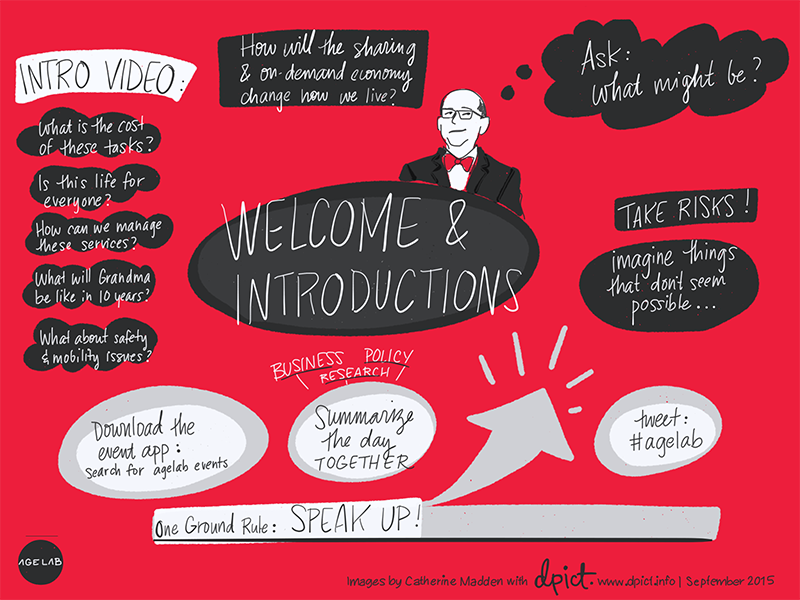 INTRO VIDEO:
What is the cost
of these tasks?
Is this life for
everyone?
How can we manage
these services?
What will Grandma
be like in 10 years?
What about safety
& mobility issues?
How will the sharing
& on-demand economy
change how we live?
Ask:
what might be?
WELCOME &
INTRODUCTIONS
TAKE RISKS!
imagine things
that don't seem
possible...
BUSINESS POLICY
RESEARCH
Download the
event app:
Search for agelab events
Summarize
the day
TOGETHER
tweet:
#agelab
One Ground Rule: SPEAK UP!
AGE LAB
Images by Catherine Madden with dpict. www.dpict.info | September 2015